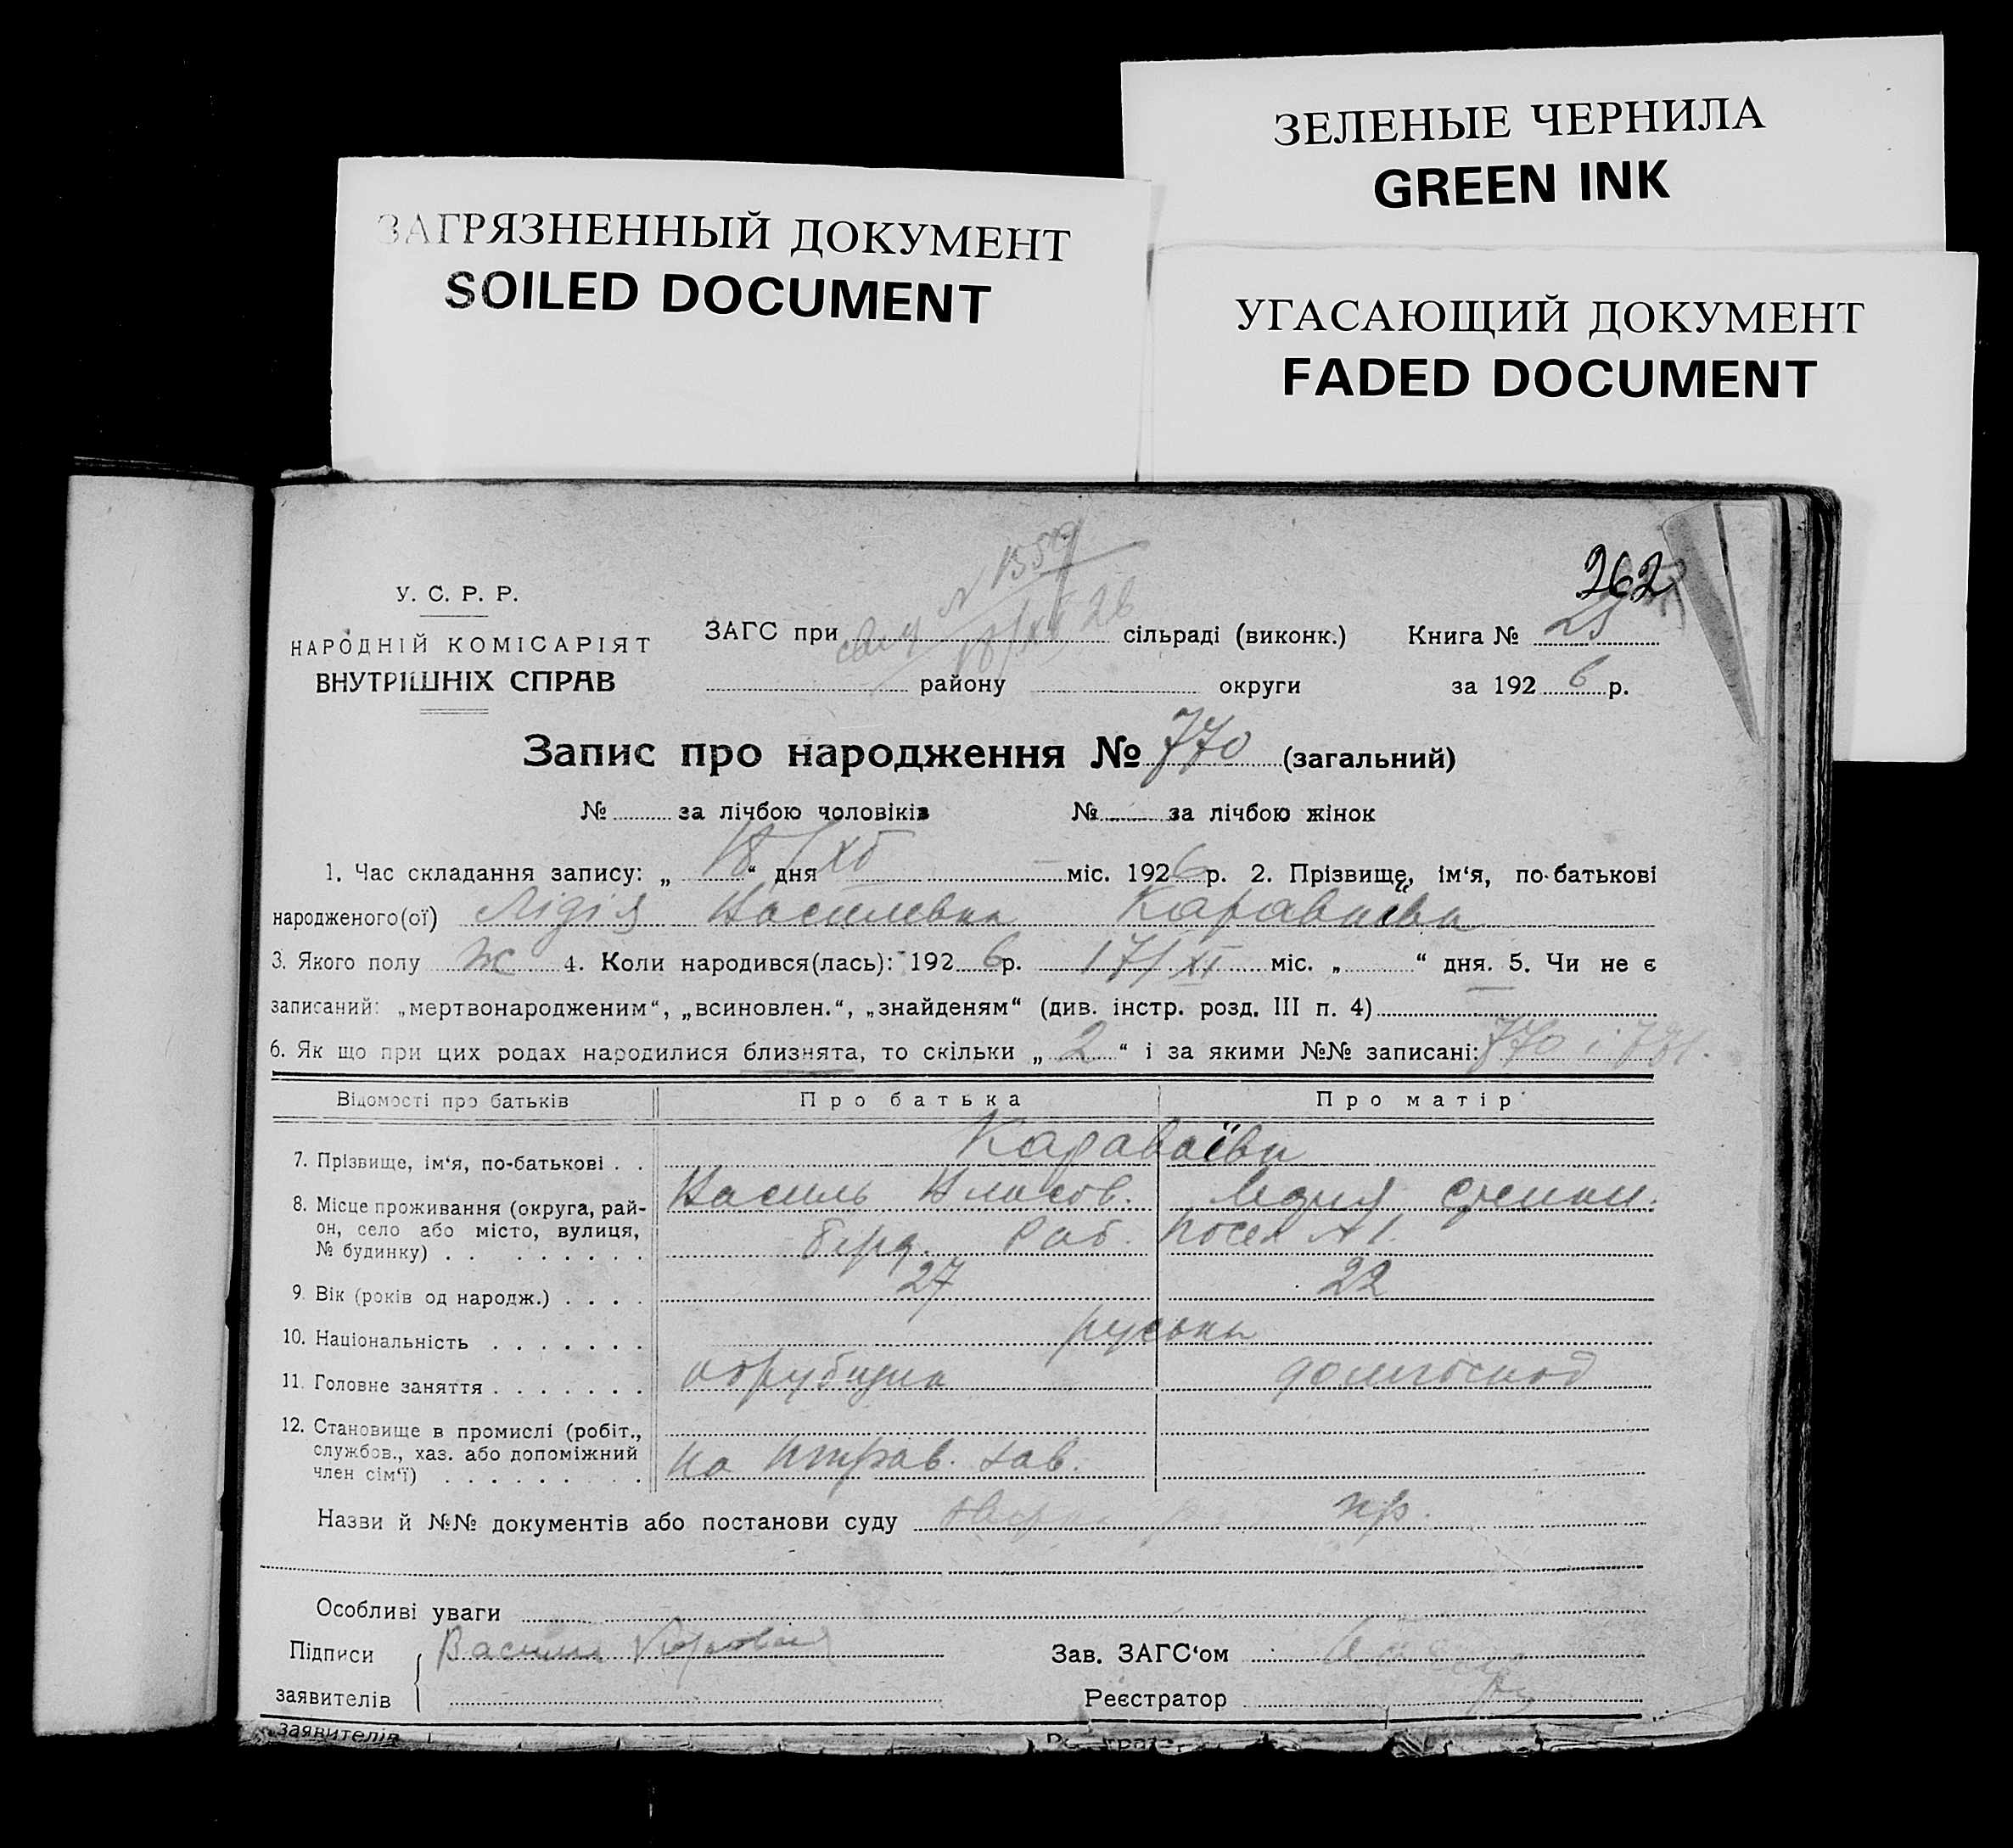 ЗЕЛЕНЫЕ ЧЕРНИЛА
GREEN INK
ЗАГРЯЗНЕННЫЙ ДОКУМЕНТ
SOILED DOCUMENT
УГАСАЮЩИЙ ДОКУМЕНТ
FADED DOCUMENT
262
N 1559
У. С. Р. Р.
НАРОДНІЙ КОМІСАРІЯТ
ВНУТРІШНІХ СПРАВ
ЗАГС при сільраді (виконк.) Книга № 25
району округи за 1926 р.
Запис про народження № 770 (загальний)
№ за лічбою чоловіків № за лічбою жінок
1. Час складання запису: „18/XII“ дня міс. 1926 р. 2. Прізвище, ім‘я, по-батькові
народженого(ої) Лідія Василевна Караваєва
3. Якого полу ж 4. Коли народився(лась): 1926 р. 17/XI міс. „ “ дня. 5. Чи не є
записаний: „мертвонародженим“, „всиновлен.“, „знайденям“ (див. інстр. розд. III п. 4)
6. Як що при цих родах народилися близнята, то скільки „2“ і за якими №№ записані: 770 і 771.
Відомості про батьків Про батька Про матір
7. Прізвище, ім‘я, по-батькові . . Караваїви
Василь Власов. Лідия Степан.
8. Місце проживання (округа, рай-
он, село або місто, вулиця,
№ будинку) . . Берд. Раб. Посел N 1.
9. Вік (років од народж.) . . . . 27 22
10. Національність . . . . . . . руськи
11. Головне заняття . . . . . . . обрубщик домгоспод
12. Становище в промислі (робіт.,
службов., хаз. або допоміжний
член сім‘ї) . . . . . . . . . на зав.
Назви й №№ документів або постанови суду пр.
Особливі уваги
Підписи Василь Зав. ЗАГС‘ом
заявителів Реєстратор
заявителів